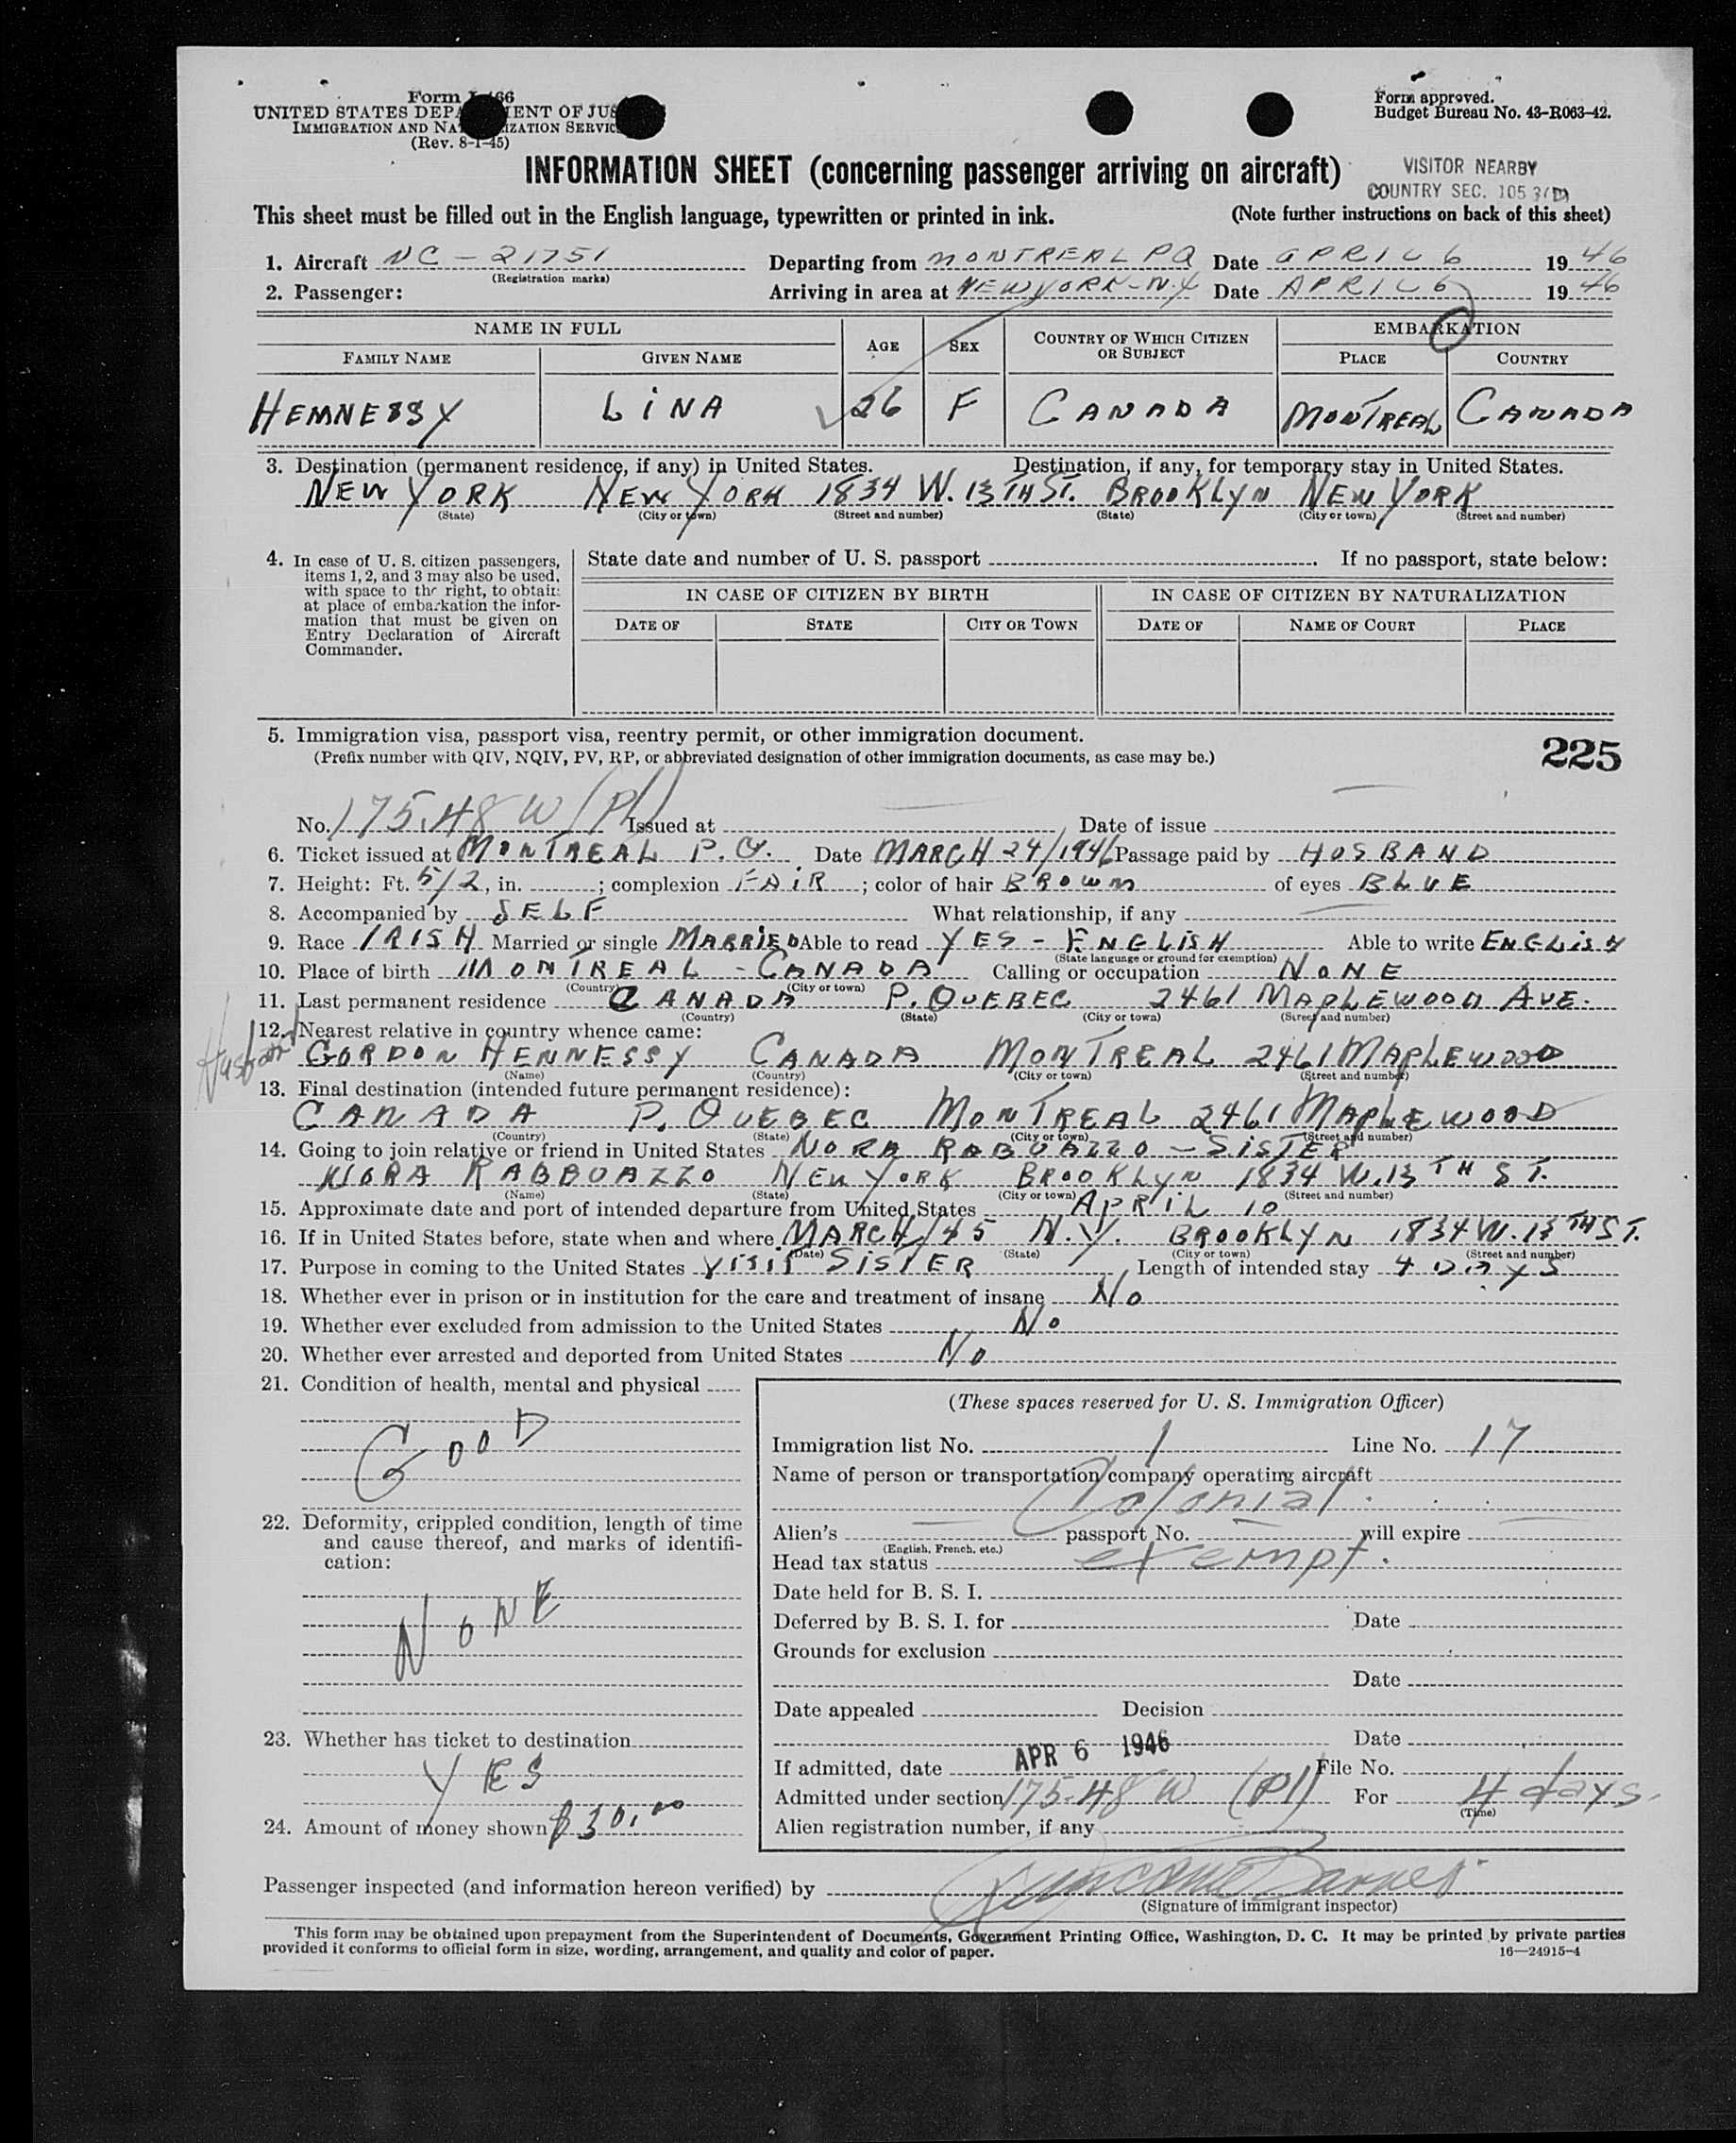 Form I-466
UNITED STATES DEPARTMENT OF JUSTICE
IMMIGRATION AND NATURALIZATION SERVICE
(Rev. 8-1-45)
Form approved.
Budget Bureau No. 43-R063-42.
INFORMATION SHEET (concerning passenger arriving on aircraft)
VISITOR NEARBY
COUNTRY SEC. 105 3(D)
This sheet must be filled out in the English language, typewritten or printed in ink. (Note further instructions on back of this sheet)
1. Aircraft NC - 21751 Departing from MONTREAL PQ Date APRIL 6 1946
(Registration marks)
2. Passenger: Arriving in area at NEW YORK - N.Y Date APRIL 6 1946
NAME IN FULL AGE SEX COUNTRY OF WHICH CITIZEN OR SUBJECT EMBARKATION
FAMILY NAME GIVEN NAME PLACE COUNTRY
HEMNESSY LINA 26 F CANADA MONTREAL CANADA
3. Destination (permanent residence, if any) in United States. Destination, if any, for temporary stay in United States.
NEW YORK NEW YORK 1834 W. 13TH ST. BROOKLYN NEW YORK
(State) (City or town) (Street and number) (State) (City or town) (Street and number)
4. In case of U. S. citizen passengers, items 1, 2, and 3 may also be used, with space to the right, to obtain at place of embarkation the information that must be given on Entry Declaration of Aircraft Commander.
State date and number of U. S. passport If no passport, state below:
IN CASE OF CITIZEN BY BIRTH IN CASE OF CITIZEN BY NATURALIZATION
DATE OF STATE CITY OR TOWN DATE OF NAME OF COURT PLACE
5. Immigration visa, passport visa, reentry permit, or other immigration document.
(Prefix number with QIV, NQIV, PV, RP, or abbreviated designation of other immigration documents, as case may be.)
225
No. 175.48 W (P1) Issued at Date of issue
6. Ticket issued at MONTREAL P.Q. Date MARCH 24/1946 Passage paid by HUSBAND
7. Height: Ft. 5/2, in. ; complexion FAIR ; color of hair BROWN of eyes BLUE
8. Accompanied by SELF What relationship, if any
9. Race IRISH Married or single MARRIED Able to read YES - ENGLISH Able to write ENGLISH
(State language or ground for exemption)
10. Place of birth MONTREAL - CANADA Calling or occupation NONE
(Country) (City or town)
11. Last permanent residence CANADA P. QUEBEC 2461 MAPLEWOOD AVE.
(Country) (State) (City or town) (Street and number)
Husband
12. Nearest relative in country whence came:
GORDON HENNESSY CANADA MONTREAL 2461 MAPLEWOOD
(Name) (Country) (City or town) (Street and number)
13. Final destination (intended future permanent residence):
CANADA P. QUEBEC MONTREAL 2461 MAPLEWOOD
(Country) (State) (City or town) (Street and number)
14. Going to join relative or friend in United States NORA RABUAZZO - SISTER
NORA RABBUAZZO NEW YORK BROOKLYN 1834 W. 13TH ST.
(Name) (State) (City or town) (Street and number)
15. Approximate date and port of intended departure from United States APRIL 10
16. If in United States before, state when and where MARCH/45 N.Y. BROOKLYN 1834 W. 13TH ST.
(Date) (State) (City or town) (Street and number)
17. Purpose in coming to the United States VISIT SISTER Length of intended stay 4 DAYS
18. Whether ever in prison or in institution for the care and treatment of insane No
19. Whether ever excluded from admission to the United States No
20. Whether ever arrested and deported from United States No
21. Condition of health, mental and physical
GOOD
22. Deformity, crippled condition, length of time and cause thereof, and marks of identification:
NONE
23. Whether has ticket to destination
YES
24. Amount of money shown $30.00
(These spaces reserved for U. S. Immigration Officer)
Immigration list No. 1 Line No. 17
Name of person or transportation company operating aircraft
Colonial.
Alien's passport No. will expire
(English, French, etc.)
Head tax status exempt.
Date held for B. S. I.
Deferred by B. S. I. for Date
Grounds for exclusion
Date
Date appealed Decision
Date
If admitted, date APR 6 1946 File No.
Admitted under section 175.48 W (P1) For 4 days.
(Time)
Alien registration number, if any
Passenger inspected (and information hereon verified) by
(Signature of immigrant inspector)
This form may be obtained upon prepayment from the Superintendent of Documents, Government Printing Office, Washington, D. C. It may be printed by private parties
provided it conforms to official form in size, wording, arrangement, and quality and color of paper. 16—24915-4